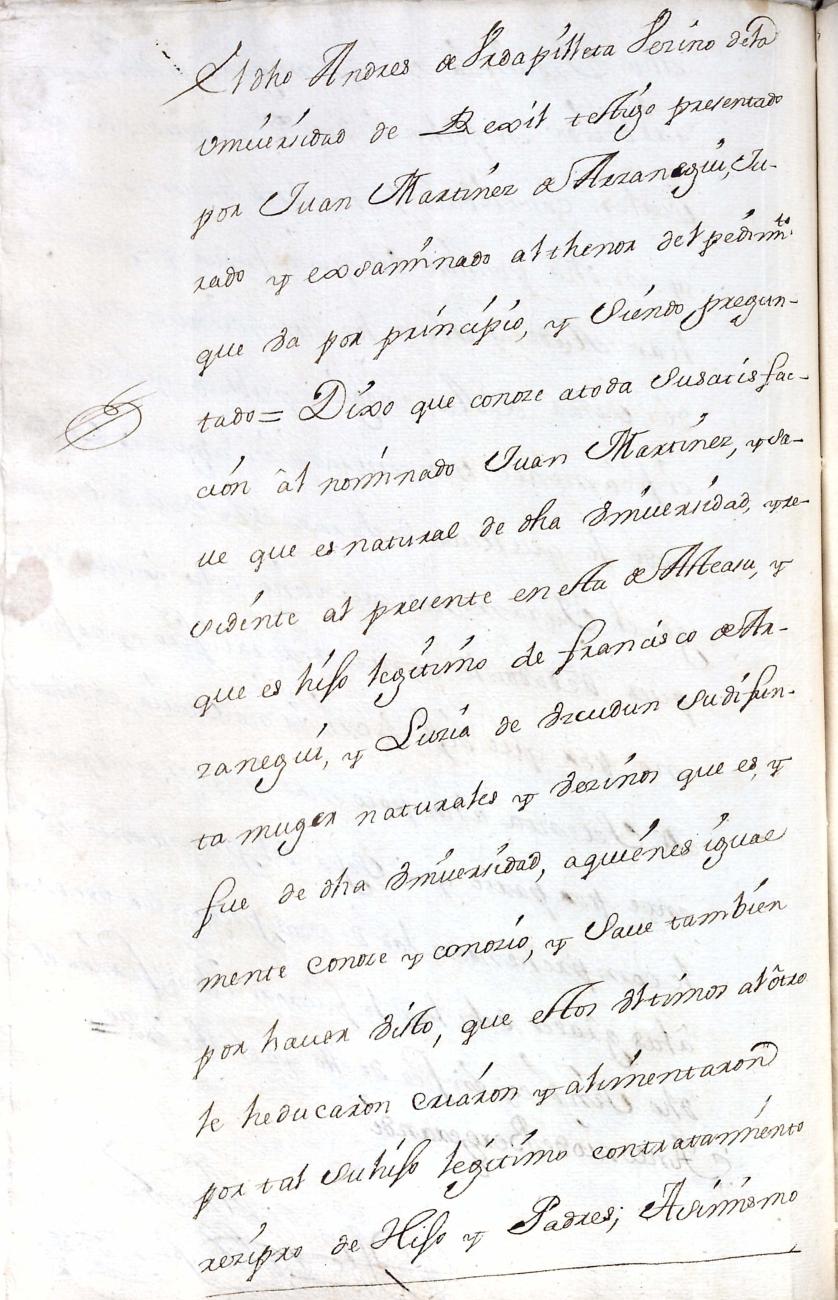 El dho Andres de Urdapilleta Vezino dela
Vniversidad de Rexil testigo presentado
por Juan Martinez de Arranegui, Ju-
rado y exsaminado al thenor del pedimto
que da por principio, y Siendo pregun-
tado = Dixo que conoze atoda Susatisfac-
ción âl nominado Juan Martinez, y sa-
ve que es natural de dha Vniversidad, y re-
sidente al presente en esta de Asteasu, y
que es hijo legitimo de francisco de Ar-
ranegui, y Luzia de Vrcudun Su difun-
ta muger naturales y Vezinos que es, y
fue de dha Vniversidad, aquienes igual
mente Conoze y conozio, y Save tambien
por haver visto, que estos Vltimos al ôtro
le heducaron Criaron y alimentaron
por tal Su hijo legitimo contratamiento
rezipro de Hijo y Padres; Asimismo